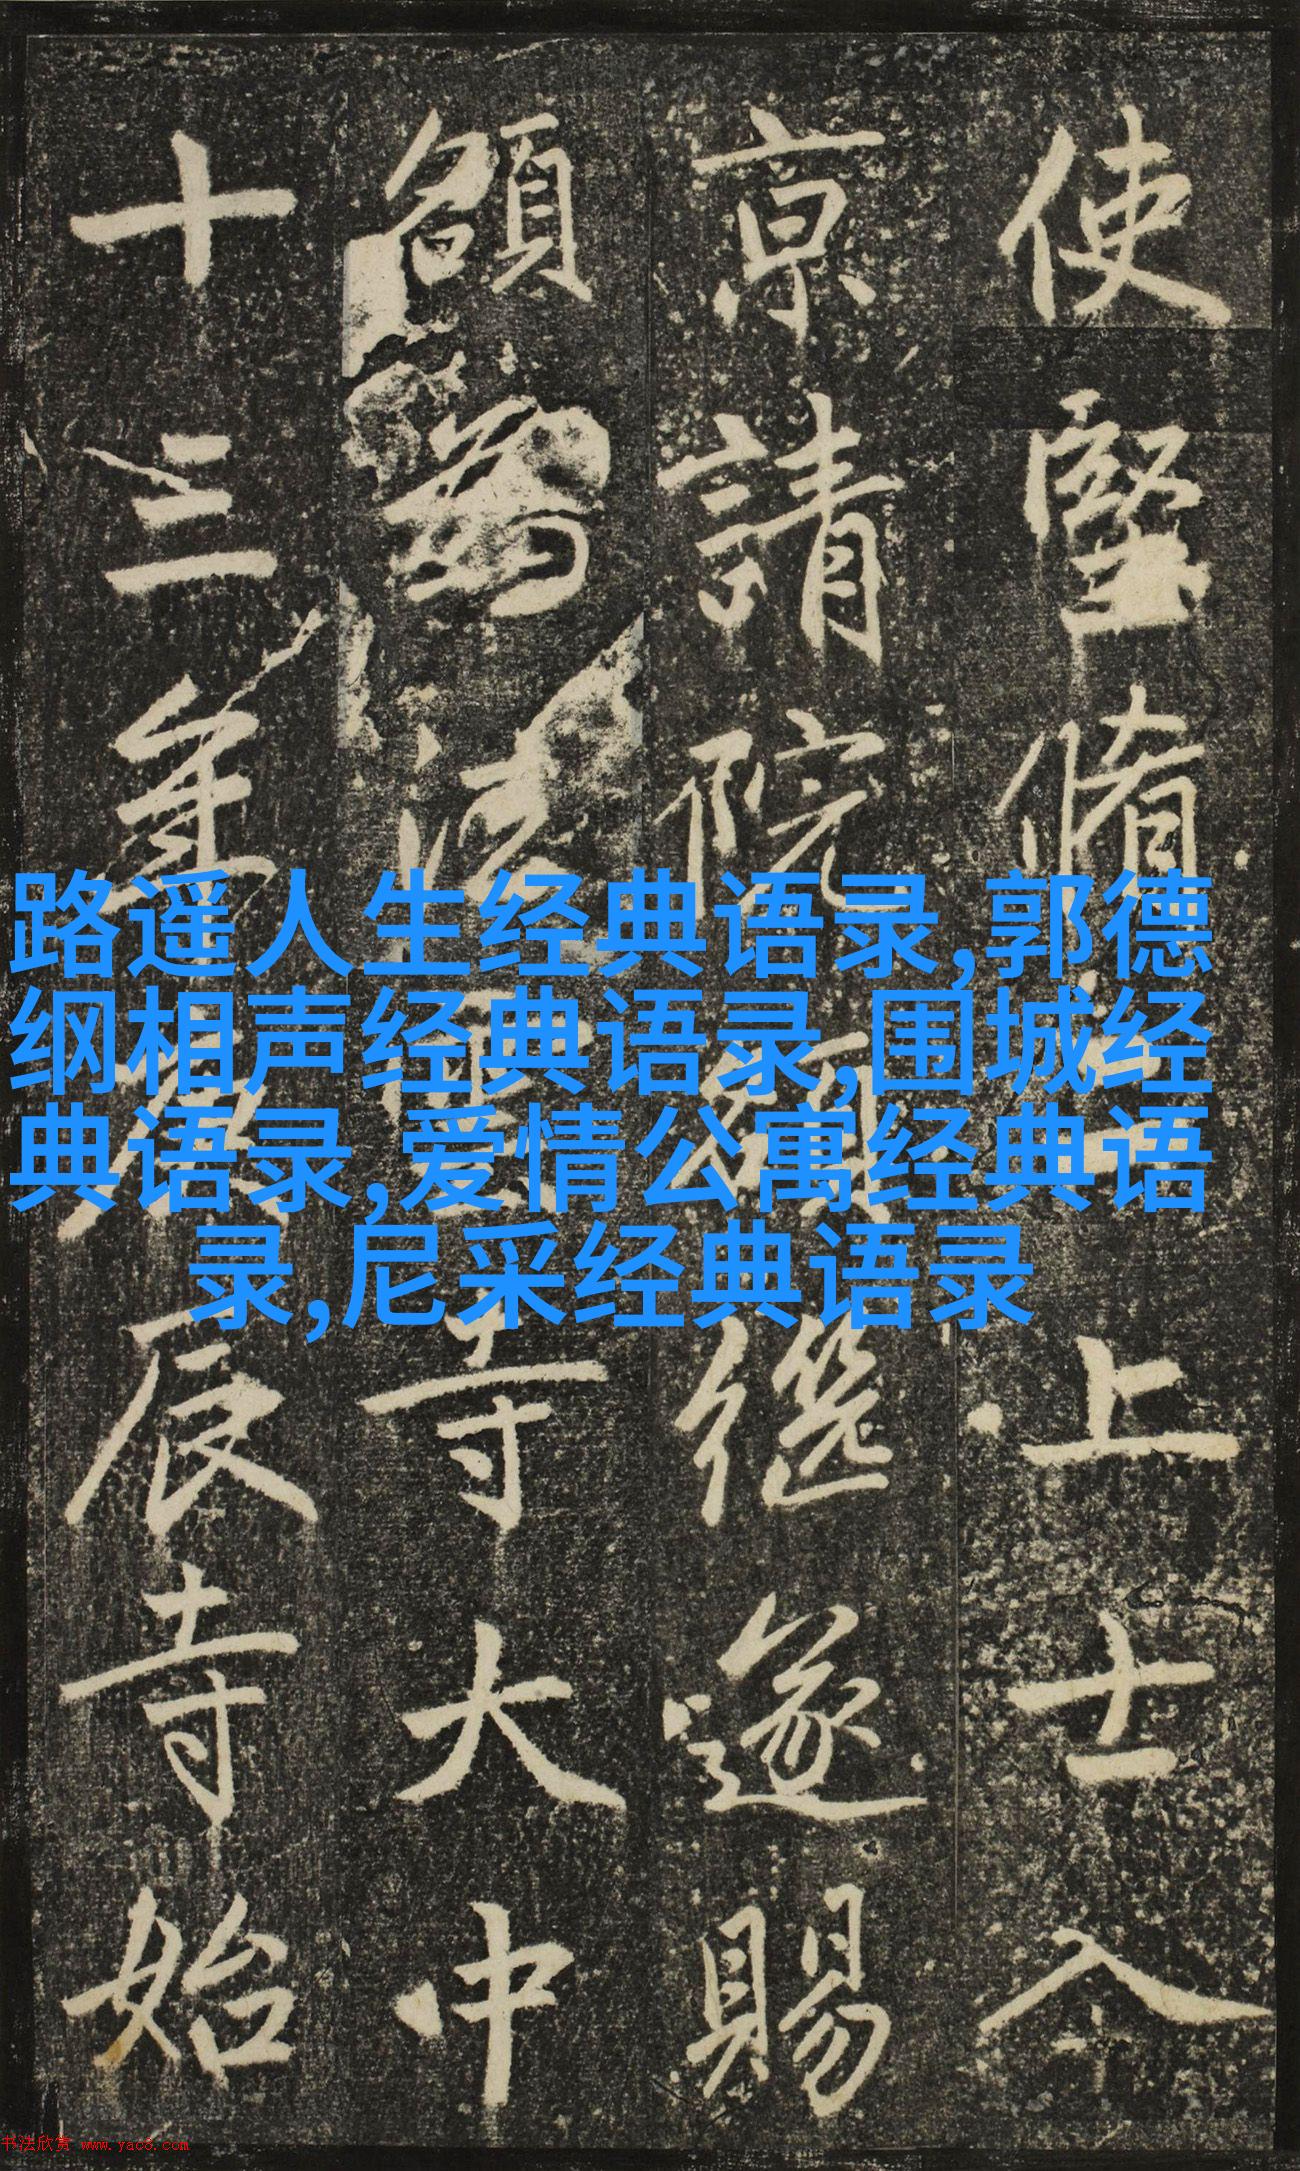 使堅脩上士入
京請院繼遂賜
額為法寺大中
十三年辰寺始
路遥人生经典语录,郭德
纲相声经典语录,围城经
典语录,爱情公寓经典语
录,尼采经典语录
书法欣赏 www.yac8.com